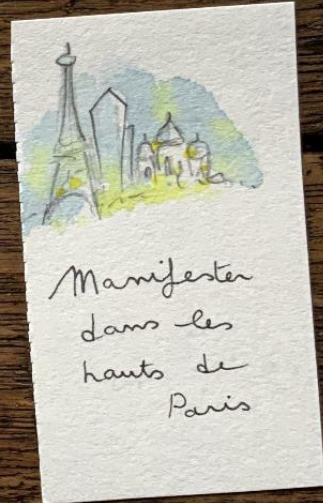 Manifester
dans les
hauts de
Paris